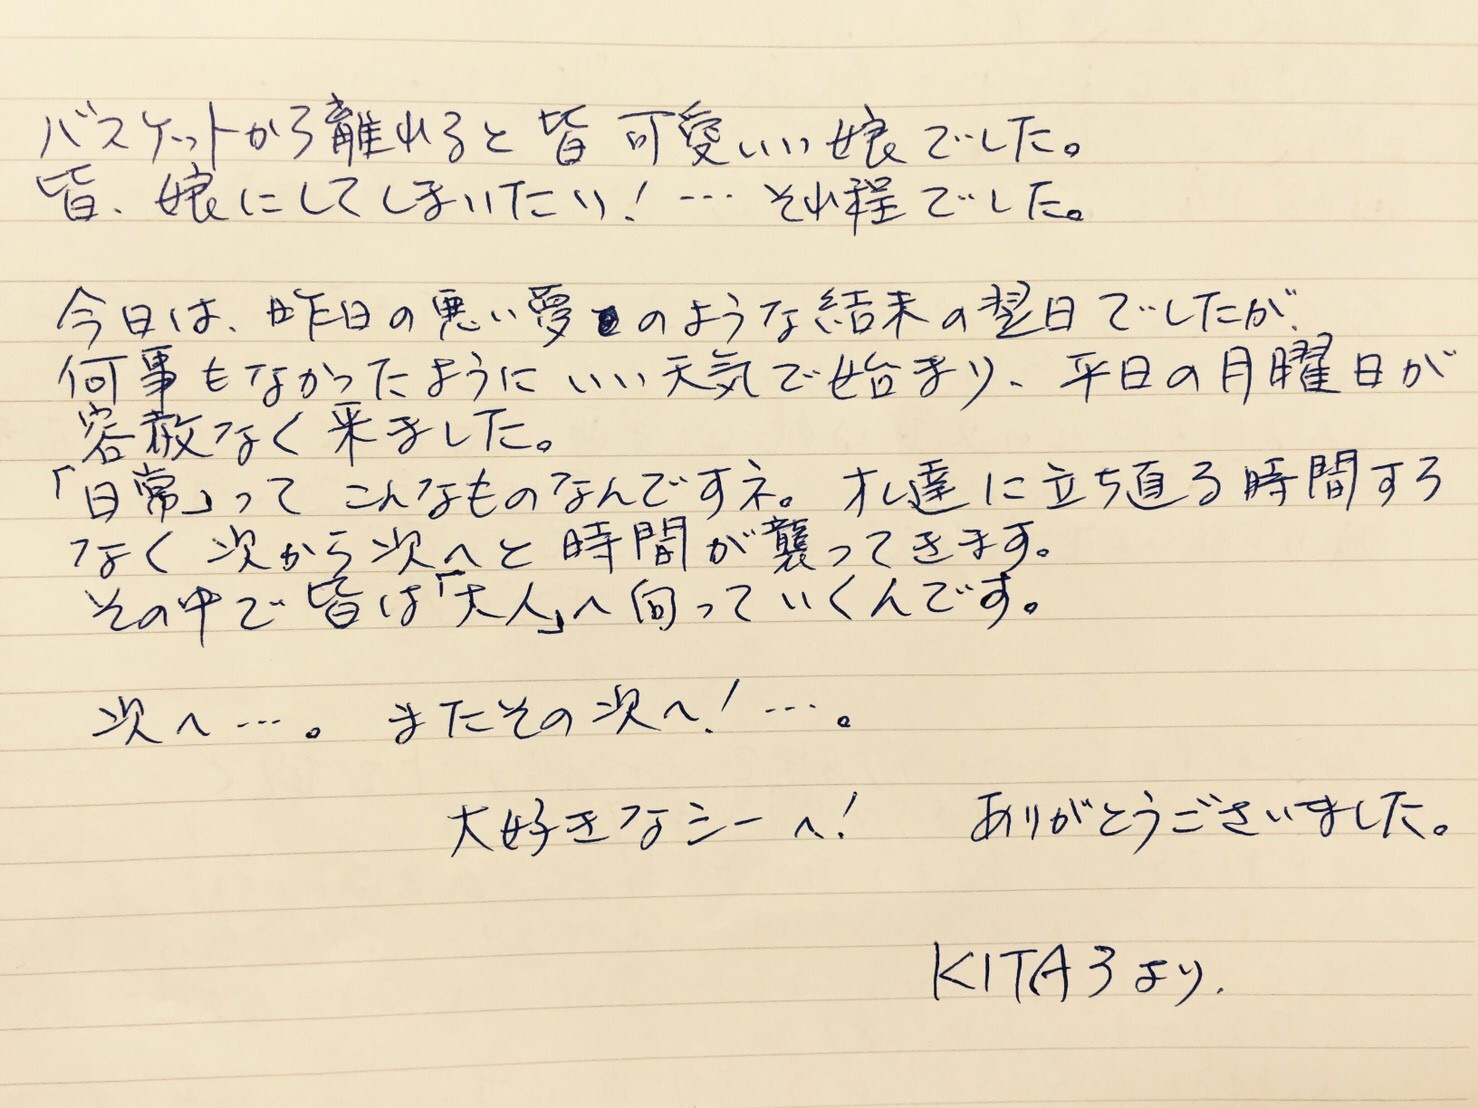 バスケットから離れると皆可愛いい娘でした。
皆、娘にしてしまいたい!…それ程でした。
今日は、昨日の悪い夢のような結末の翌日でしたが、
何事もなかったように いい天気で始まり、平日の月曜日が
容赦なく来ました。
「日常」って こんなものなんですネ。オレ達に立ち直る時間すら
なく 次から次へと時間が襲ってきます。
その中で皆は「大人」へ向っていくんです。
次へ…。 またその次へ!…。
大好きなシーへ! ありがとうございました。
KITA3より.